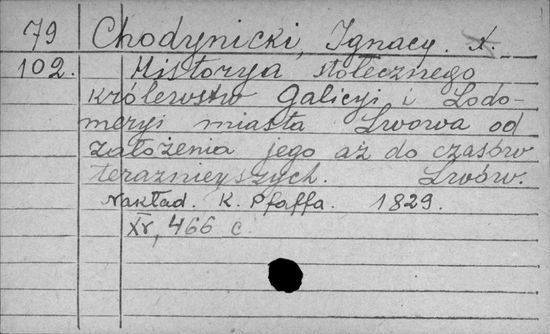 79 Chodynicki, Ignacy. X.
102. Historya stołecznego
królewstw Galicyi i Lodo-
meryi miasta Lwowa od
założenia jego aż do czasów
teraznieyszych. Lwów.
Nakład. K. Pfaffa. 1829.
XV, 466 c.